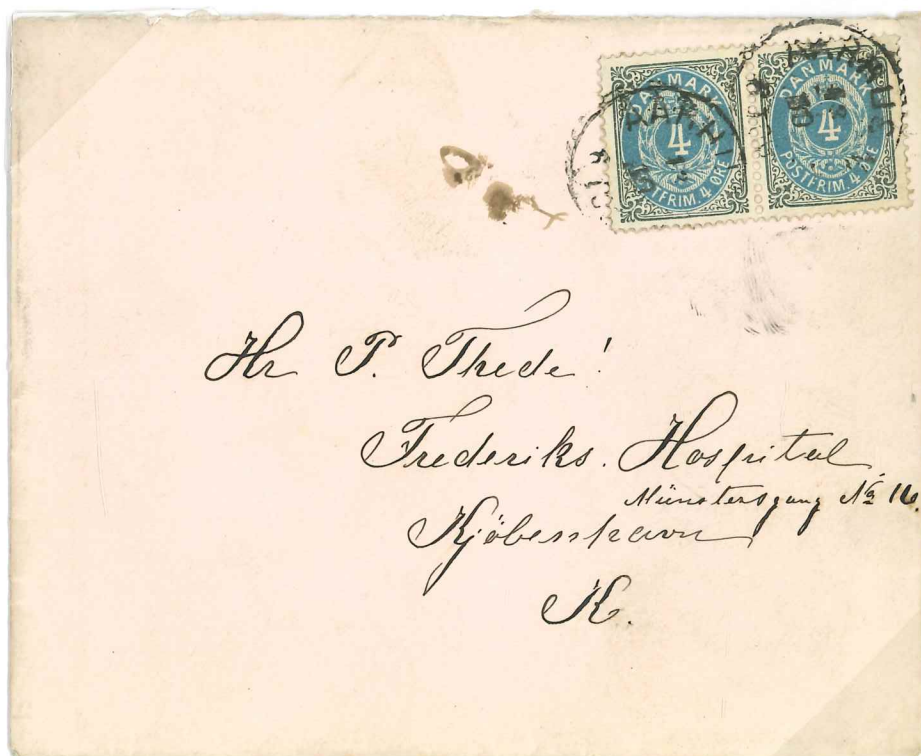 DANMARK
4
POSTFRIM. 4 ØRE
DANMARK
4
POSTFRIM. 4 ØRE
AARHUS
Hr P. Thede!
Frederiks. Hospital
Münstersgang No 16.
Kjöbenhavn
K.